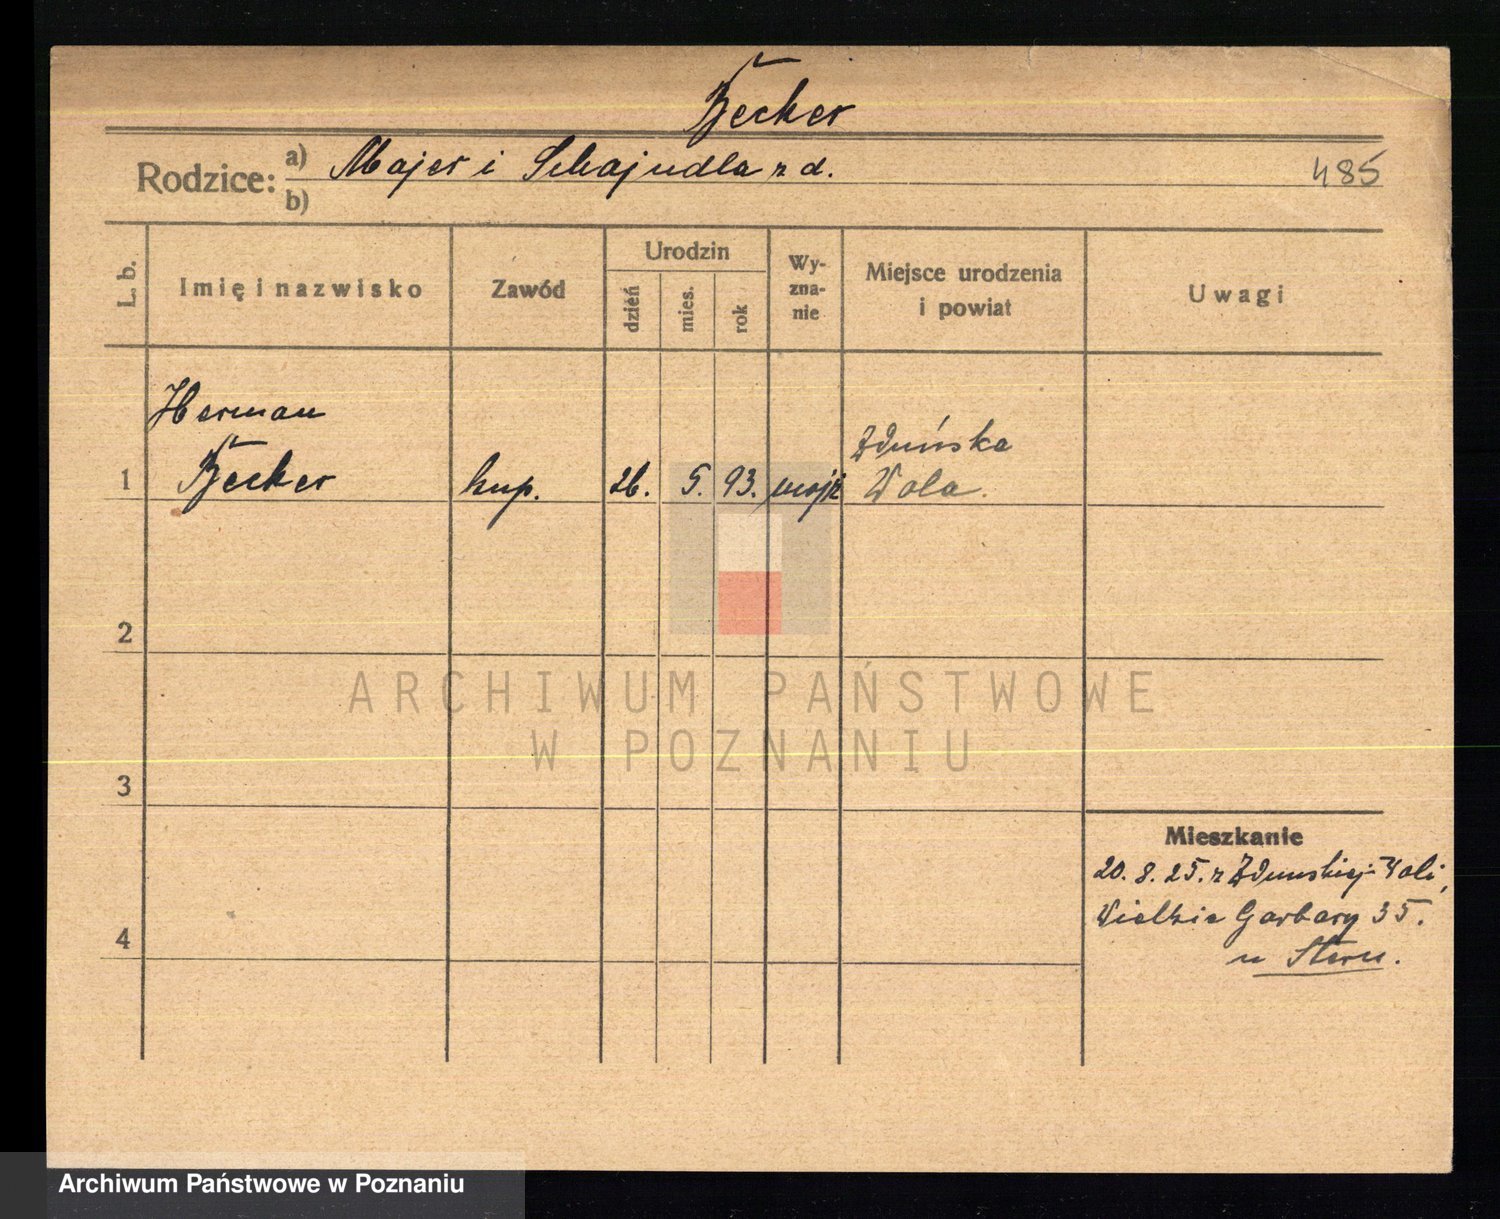 Becker
Rodzice: a) Majer i Schajndla z d.
b)
485
L. b. Imię i nazwisko Zawód Urodzin dzień mies. rok Wy-zna-nie Miejsce urodzenia i powiat Uwagi
Herman Zduńska
1 Becker kup. 26. 5. 93. mojż Wola.
2
ARCHIWUM PAŃSTWOWE
W POZNANIU
3
Mieszkanie
20. 8. 25. z Zduńskiej-Woli,
Wielkie Garbary 35.
4
u Stern.
Archiwum Państwowe w Poznaniu